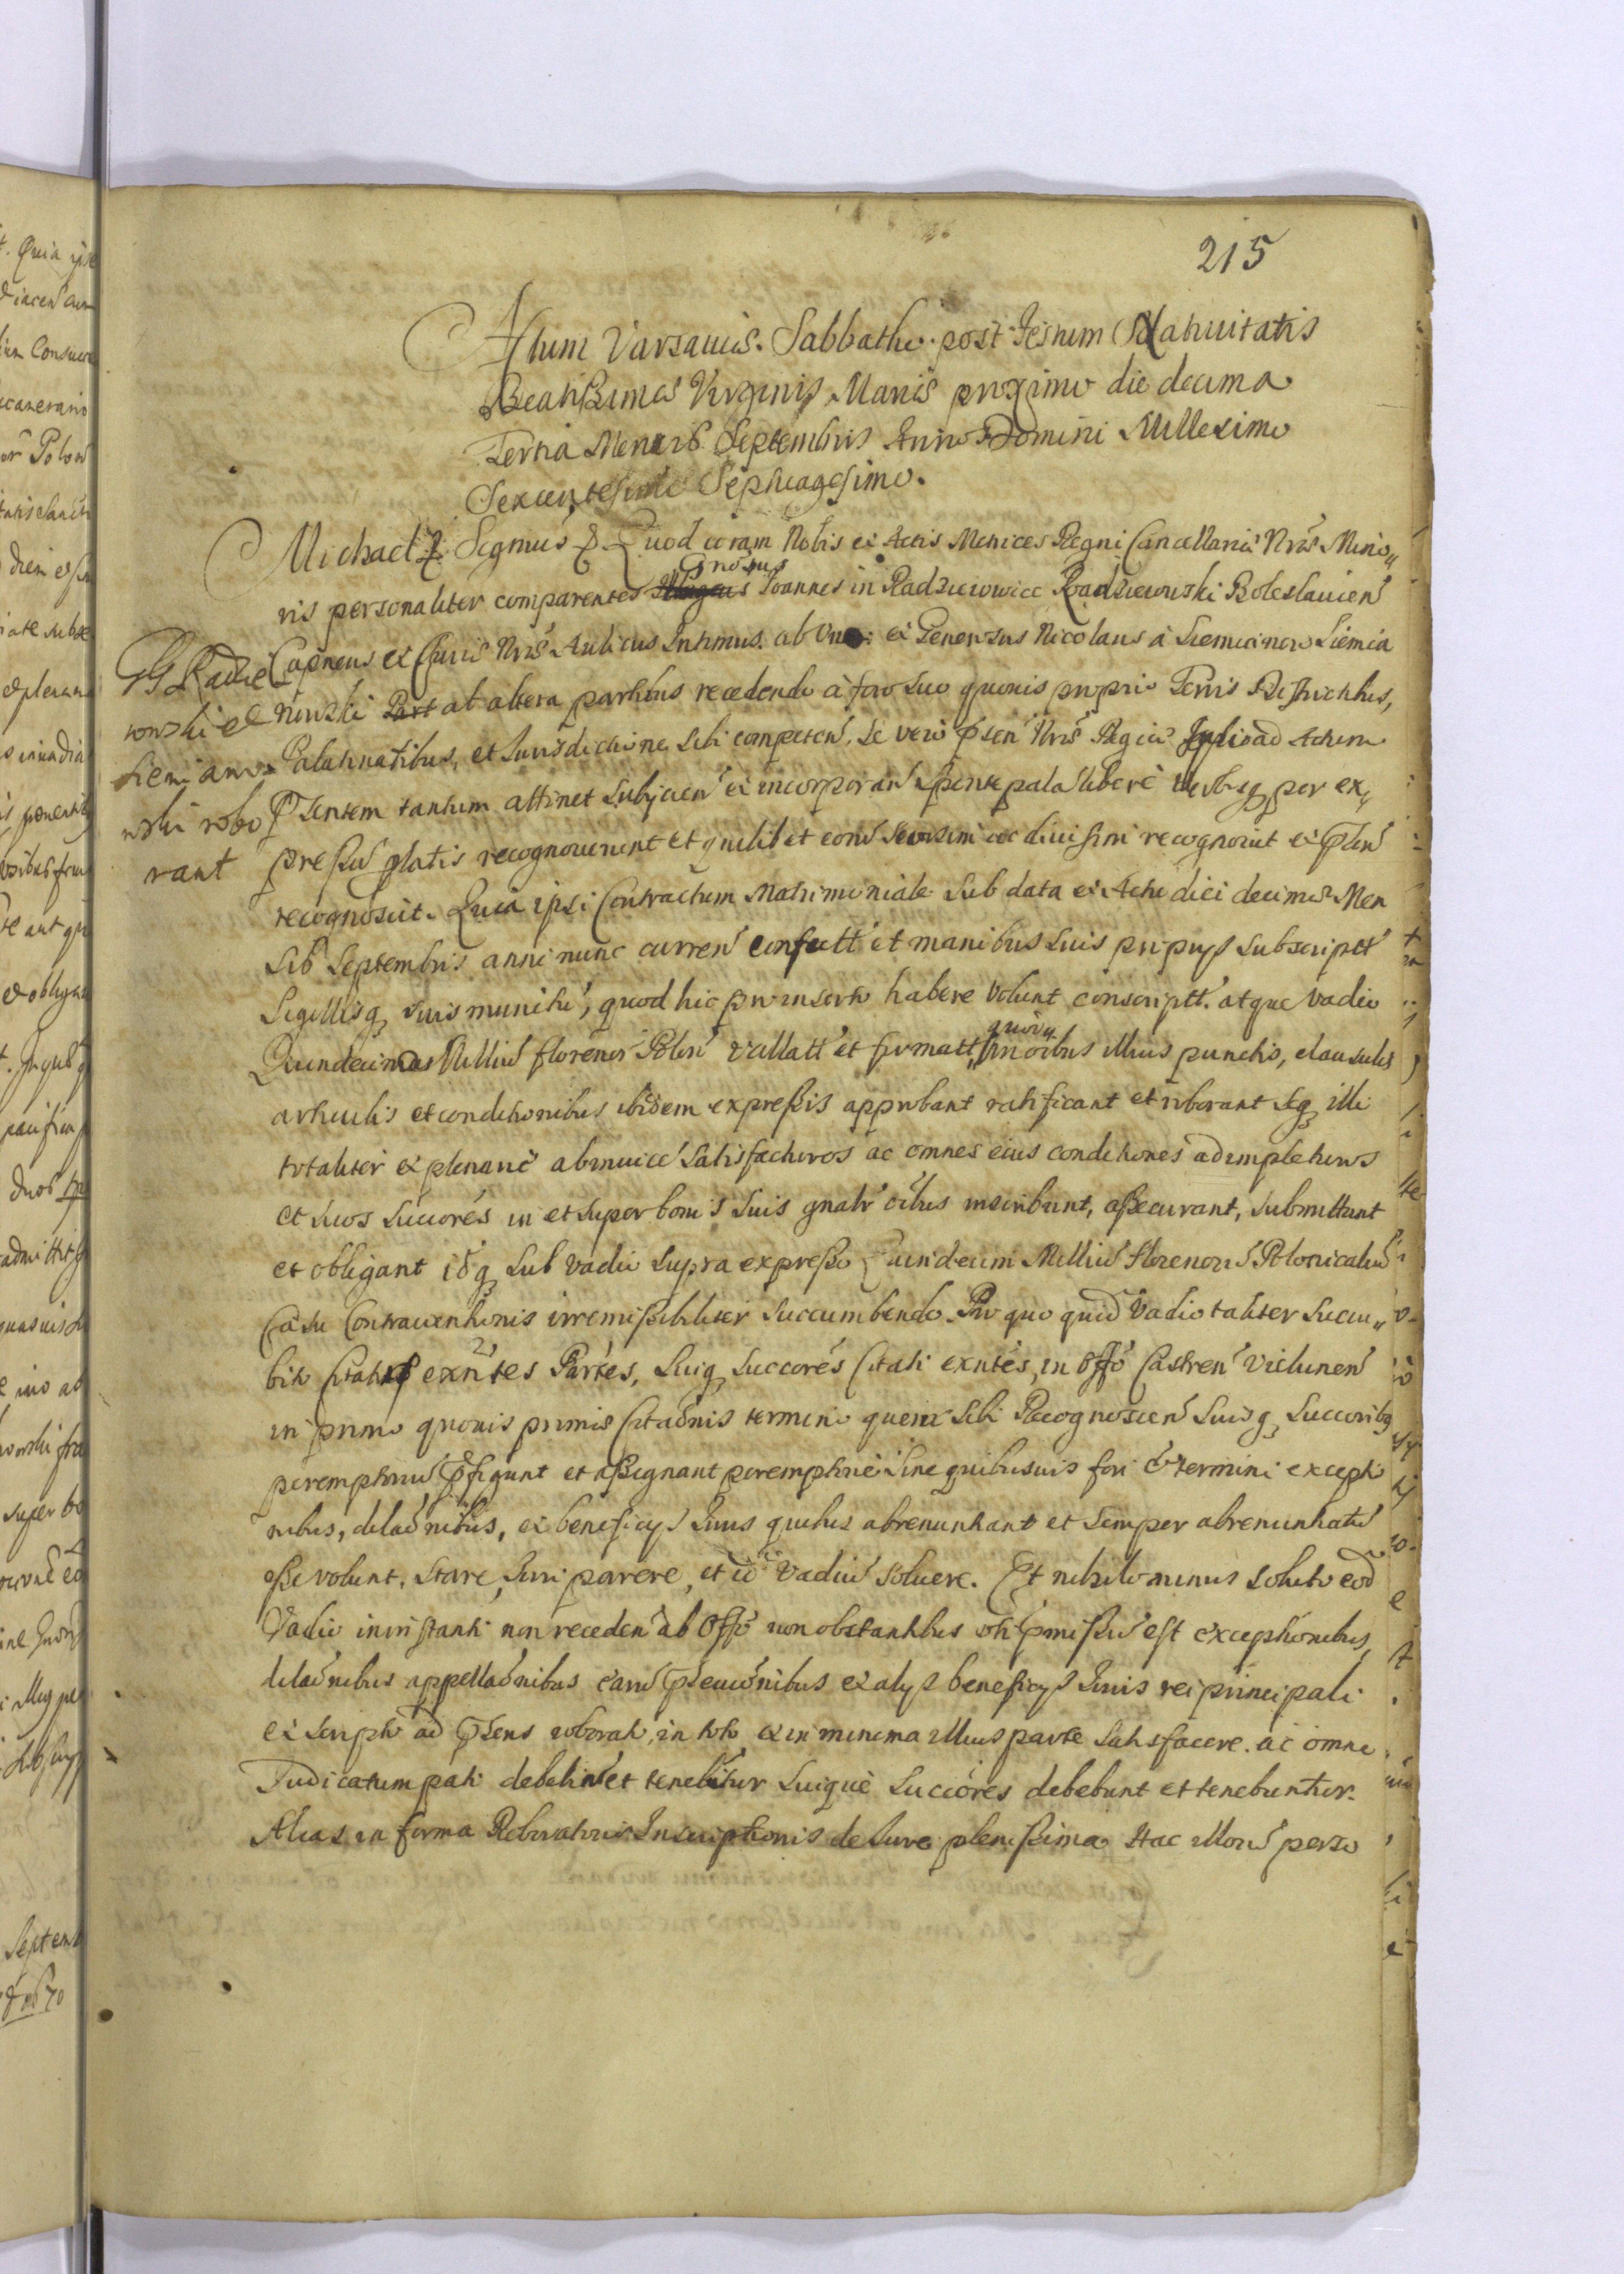 215
Actum Varsaviæ. Sabbatho post Festum Nativitatis
Beatissimæ Virginis Mariæ proximo die decima
Tertia Mensis Septembris Anno Domini Millesimo
Sexcentesimo Septuagesimo.
Michael &. Significamus &. Quod coram Nobis et Actis Metrices Regni Cancellariæ Nræ Mino„
Gnosus
ris personaliter comparentes Joannes in Radziejowice Radziewuski Boleslavien
Capneus et Curiæ Nræ Aulicus Intimus ab Una: et Generosus Nicolaus à Siemianow Siemia
nowski Part ab altera partibus recedendo à foro suo quovis proprio Terris Districtibus,
GG Radzie
iowski et
Siemiano=
wski robo
rant
Palatinatibus, et Jurisdictione sibi competen. Se vero psen Nræ Regiæ Jnplio ad Actum
psentem tantum attinet subjicien et incorporan sponte pala libere verbisq per ex„
pressu platis recognoverunt et quilibet eoru seorsim ac divisim recognovit et psen
recognoscit. Quia ipsi Contractum Matrimoniale sub data et Actu diei decimæ Men
sis Septembris anni nunc curren confectt et manibus suis propriys subscriptt
Sigillisq suis munitu, quod hic pro inserto habere volunt conscriptt. atque vadio
quovis
Quindecim Milliu florenor Polon vallatt et firmatt, in oibus illius punctis, clausulis
articulis et conditionibus ibidem expressis approbant ratificant et roborant seq illi
totaliter et plenarie abinvice satisfacturos ac omnes eius conditiones adimpleturos
et suos succores in et super bonis suis gnalr oibus inscribunt, assecurant, submittunt
et obligant idq sub vadio supra expresso Quindecim Milliu florenoru Polonicaliu
Casu Contraventionis irremissibiliter succumbendo. Pro quo quid Vadio taliter succu„
bito Citatæ exntes Partes, suiq succores Citati exntes, in Offo Castren Vielunen
in primo quovis primis Citaonis termino quem sibi Recognoscen suisq succoribq
peremptoriu pfigunt et assignant peremptorie sine quibusuis fori et termini excepti
nibus, dilaonibus, et beneficys Juris quibus abrenuntiant et semper abrenuntiatu
esse volunt, stare, Juri parere, et id Vadiu solvere. Et nihilominus soluto eod
Vadio in instanti non receden ab Offo non obstantibus uti pmissu est exceptionibus,
dilaonibus appellaonibus earu psecuonibus et alys beneficys Juris rei principali
et scripto ad psens roborato, in toto et in minima illius parte satisfacere. ac omne
Judicatum pati debebit et tenebitur suique succores debebunt et tenebuntur.
Alias in forma Roboratoris Inscriptionis de Jure plenissima Hac illoru perso